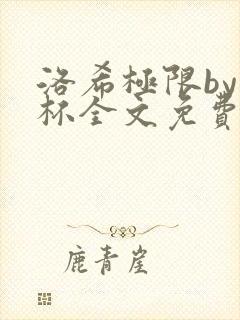 洛希極限by
杯全文免費
鹿青崖